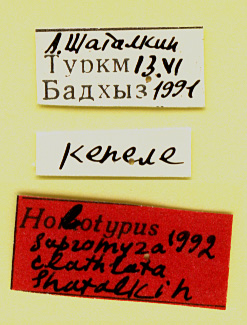 А.Шаталкин
Туркм 13.VI
Бадхыз 1991
Кепеле
Holotypus
Sapromyza 1992
clathrata
Shatalkin